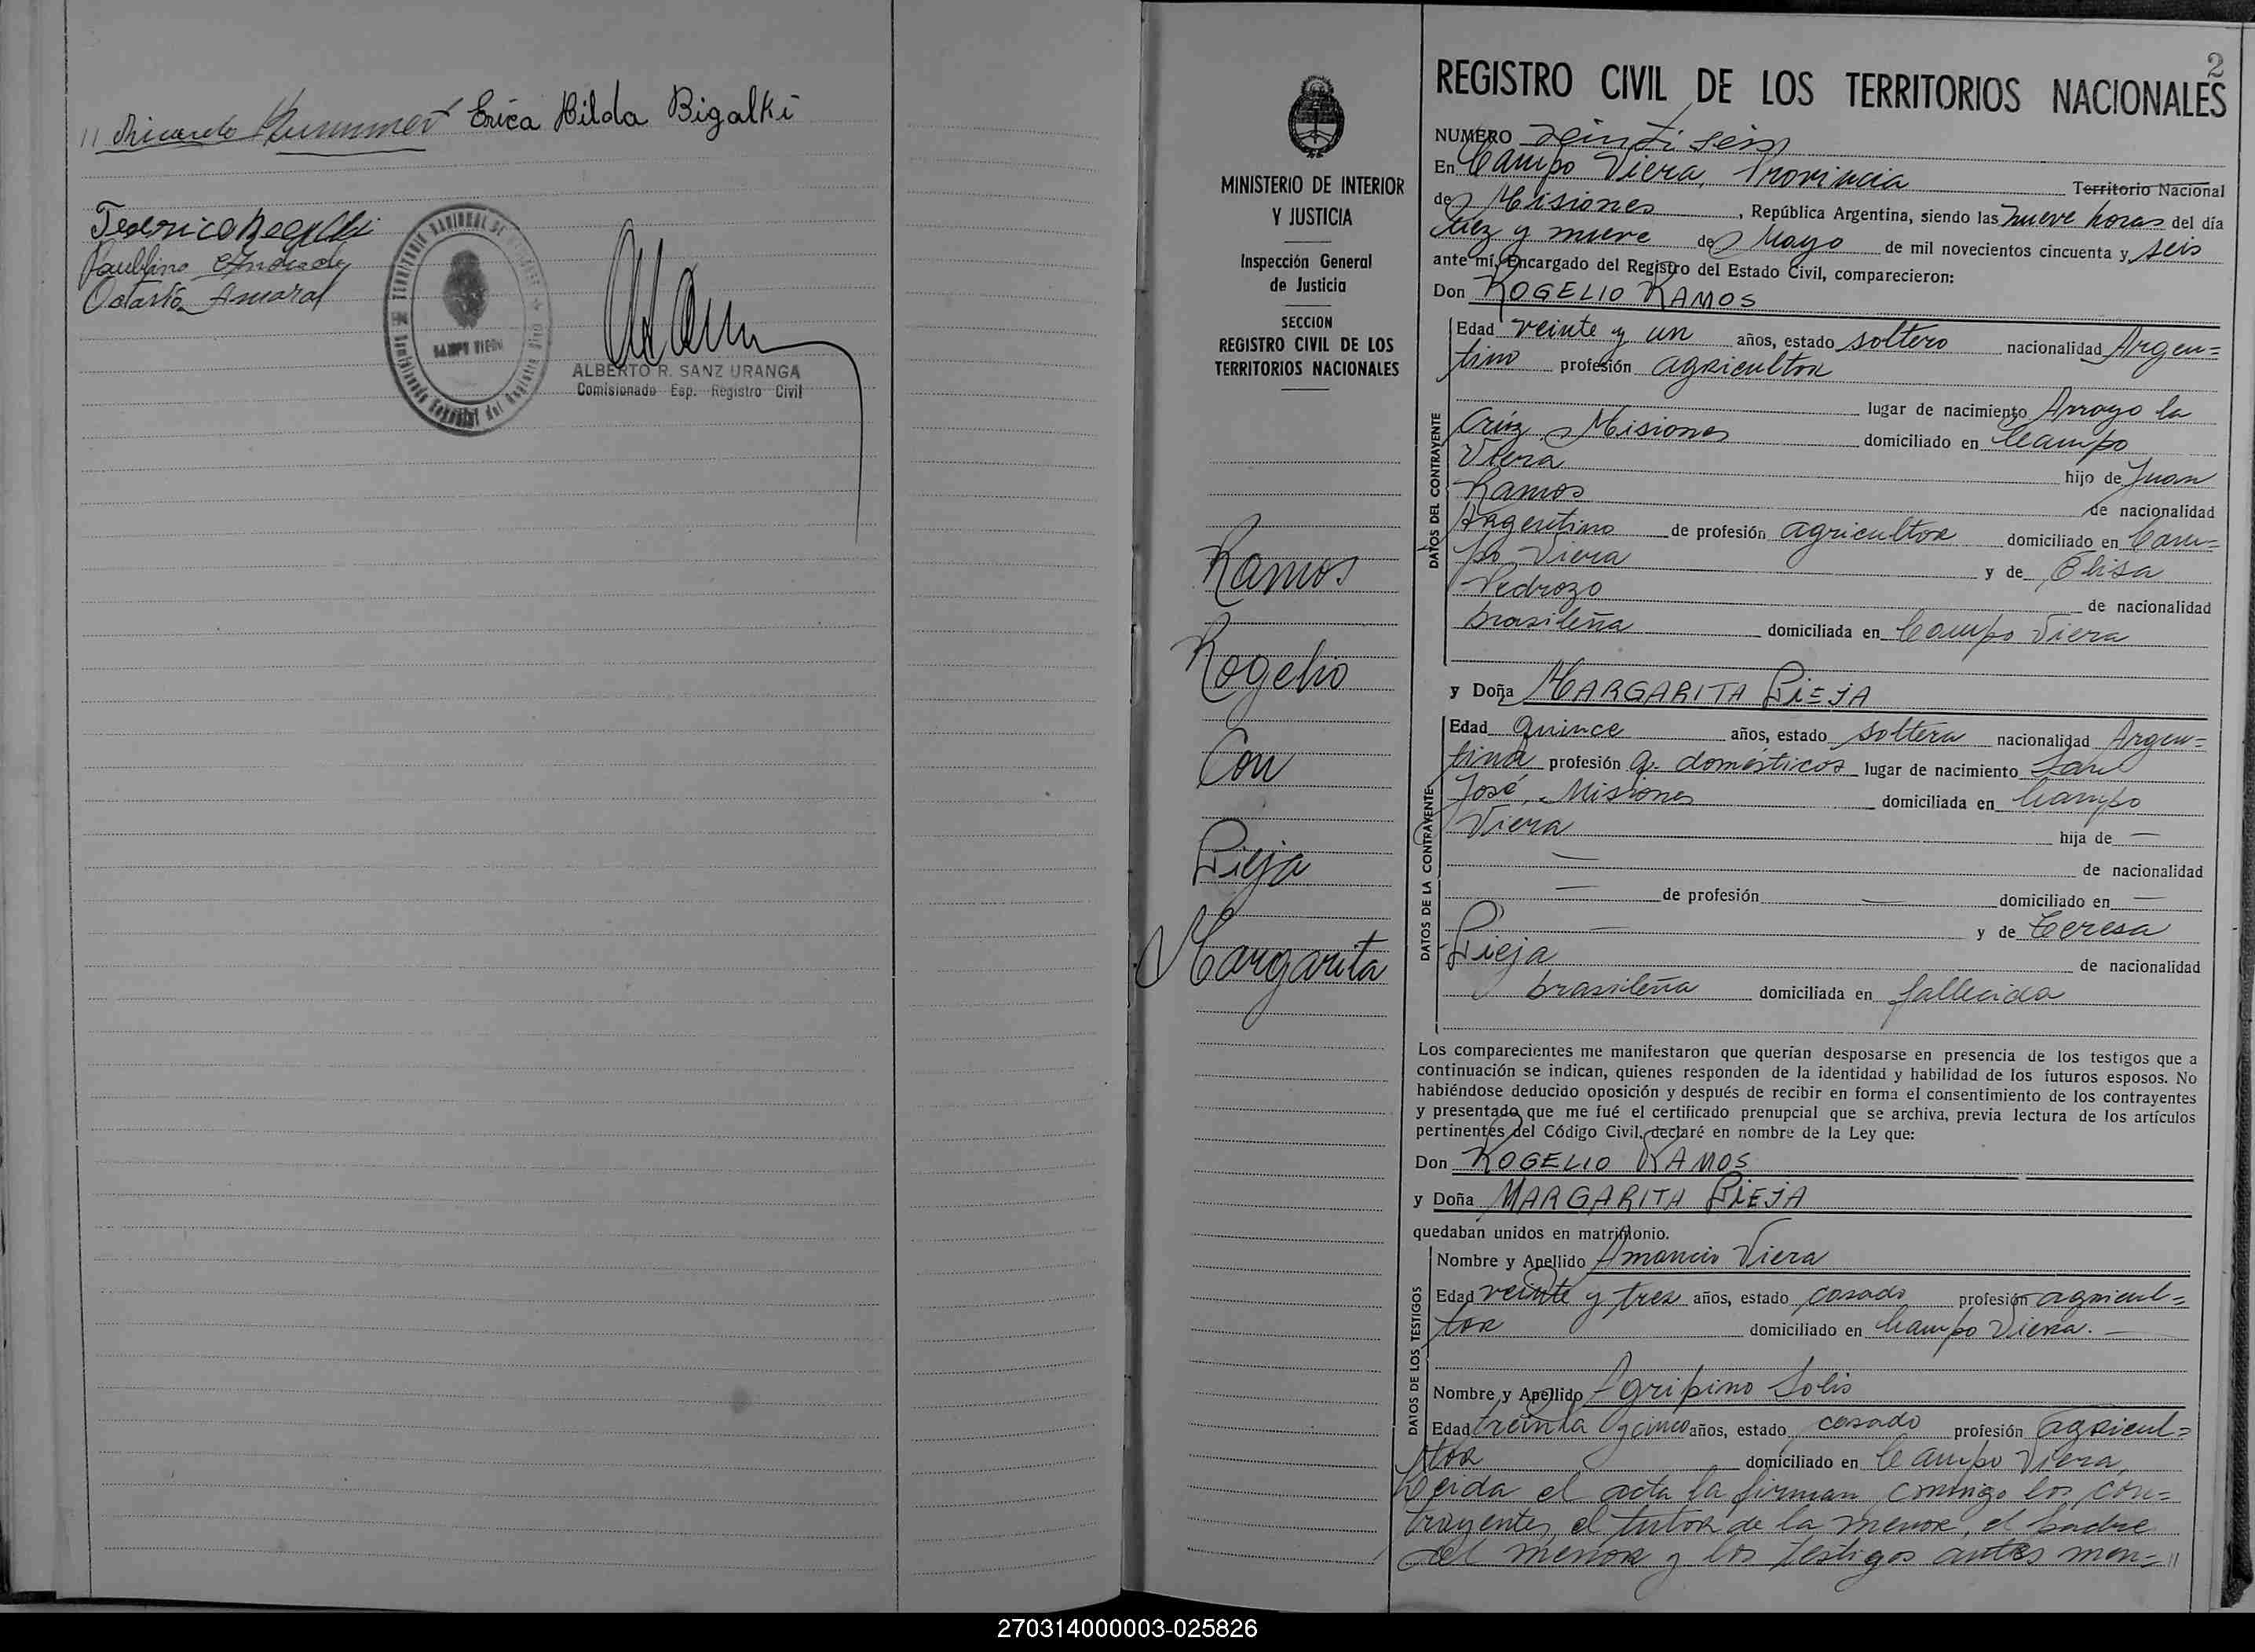 // Ricardo Kummer Erica Hilda Bigalki
Federico Bigalki
Paublino Andrade
Octavio Amaral
CAMPO VIERA
ALBERTO R. SANZ URANGA
Comisionado Esp. Registro Civil
2
MINISTERIO DE INTERIOR
Y JUSTICIA
Inspección General
de Justicia
SECCION
REGISTRO CIVIL DE LOS
TERRITORIOS NACIONALES
Ramos
Rogelio
Con
Pieja
Margarita
REGISTRO CIVIL DE LOS TERRITORIOS NACIONALES
NUMERO veinti seis
En Campo Viera, Provincia Territorio Nacional
de Misiones, República Argentina, siendo las nueve horas del día
diez y nueve de Mayo de mil novecientos cincuenta y seis
ante mí, Encargado del Registro del Estado Civil, comparecieron:
Don ROGELIO RAMOS
DATOS DEL CONTRAYENTE
Edad veinte y un años, estado soltero nacionalidad Argen=
tino profesión agricultor
lugar de nacimiento Arroyo la
Cruz, Misiones domiciliado en Campo
Viera hijo de Juan
Ramos de nacionalidad
Argentino de profesión agricultor domiciliado en Cam=
po Viera y de Elisa
Pedrozo de nacionalidad
brasileña domiciliada en Campo Viera
y Doña MARGARITA PIEJA
DATOS DE LA CONTRAYENTE
Edad quince años, estado soltera nacionalidad Argen=
tina profesión q. domésticos lugar de nacimiento San
José, Misiones domiciliada en Campo
Viera hija de —
— de nacionalidad
— de profesión — domiciliado en —
— y de Teresa
Pieja de nacionalidad
brasileña domiciliada en fallecida
Los comparecientes me manifestaron que querían desposarse en presencia de los testigos que a
continuación se indican, quienes responden de la identidad y habilidad de los futuros esposos. No
habiéndose deducido oposición y después de recibir en forma el consentimiento de los contrayentes
y presentado que me fué el certificado prenupcial que se archiva, previa lectura de los artículos
pertinentes del Código Civil, declaré en nombre de la Ley que:
Don ROGELIO RAMOS
y Doña MARGARITA PIEJA
quedaban unidos en matrimonio.
DATOS DE LOS TESTIGOS
Nombre y Apellido Amancio Viera
Edad veinte y tres años, estado casado profesión agricul=
tor domiciliado en Campo Viera. —
Nombre y Apellido Agripino Solis
Edad treinta y cinco años, estado casado profesión agricul=
tor domiciliado en Campo Viera,
Leida el acta la firman conmigo los con=
trayentes, el tutor de la menor, el padre
del menor y los testigos antes men= //
270314000003-025826